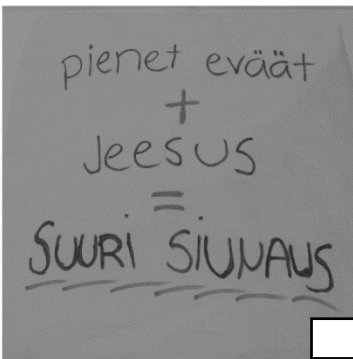 pienet eväät
+
Jeesus
=
SUURI SIUNAUS